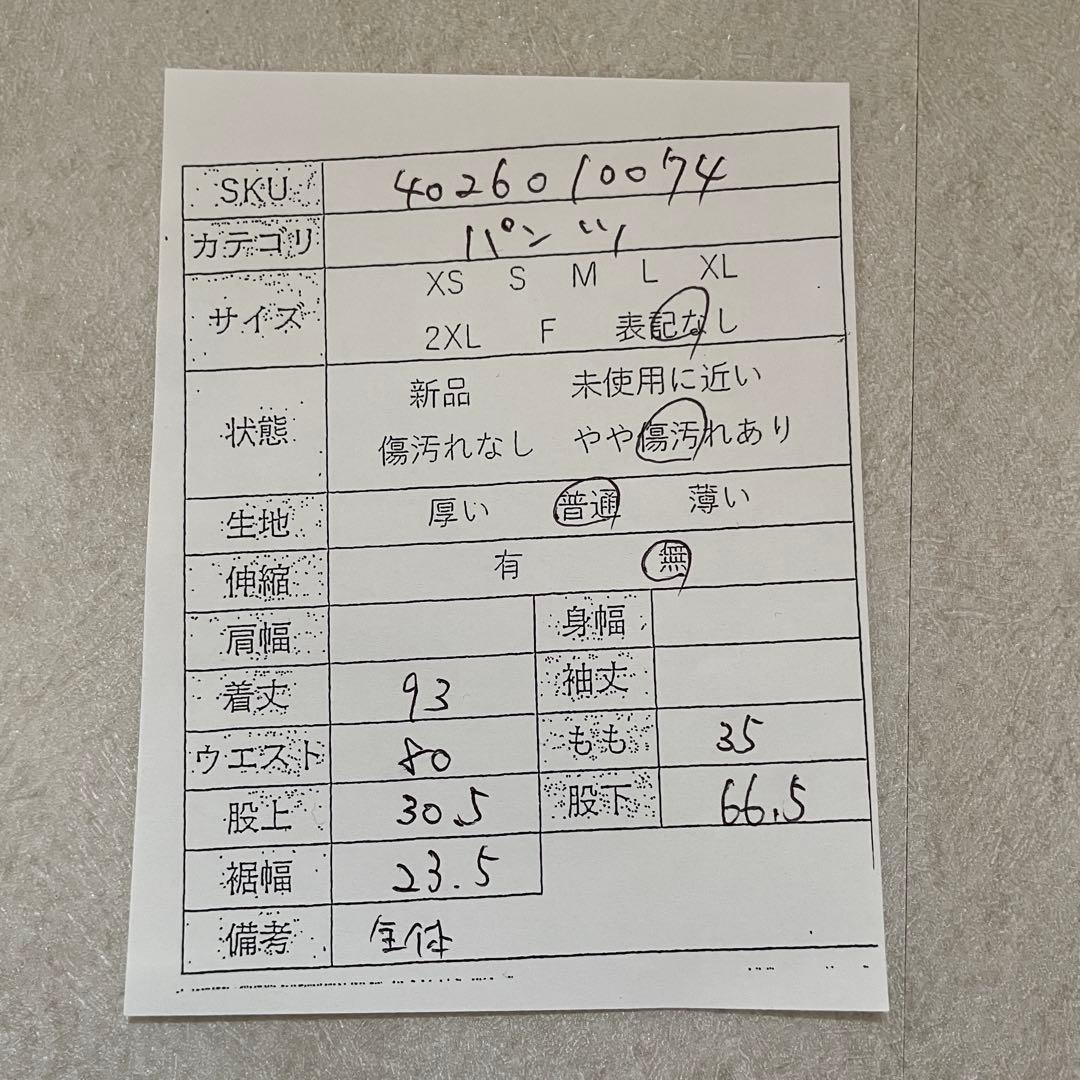 SKU 4026010074
カテゴリ パンツ
サイズ XS S M L XL
2XL F 表記なし
状態 新品 未使用に近い
傷汚れなし やや傷汚れあり
生地 厚い 普通 薄い
伸縮 有 無
肩幅 身幅
着丈 93 袖丈
ウエスト 80 もも 35
股上 30.5 股下 66.5
裾幅 23.5
備考 全体